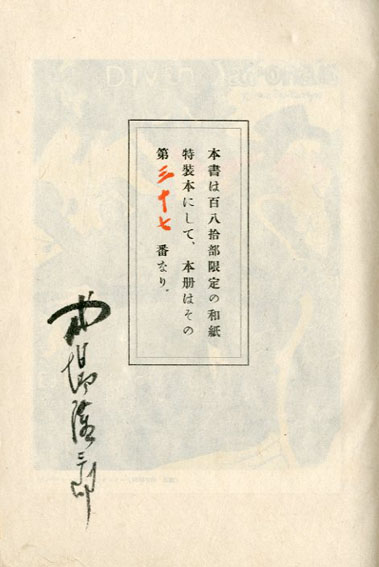 本書は百八拾部限定の和紙
特装本にして、本册はその
第三十七番なり。
式場隆三郎